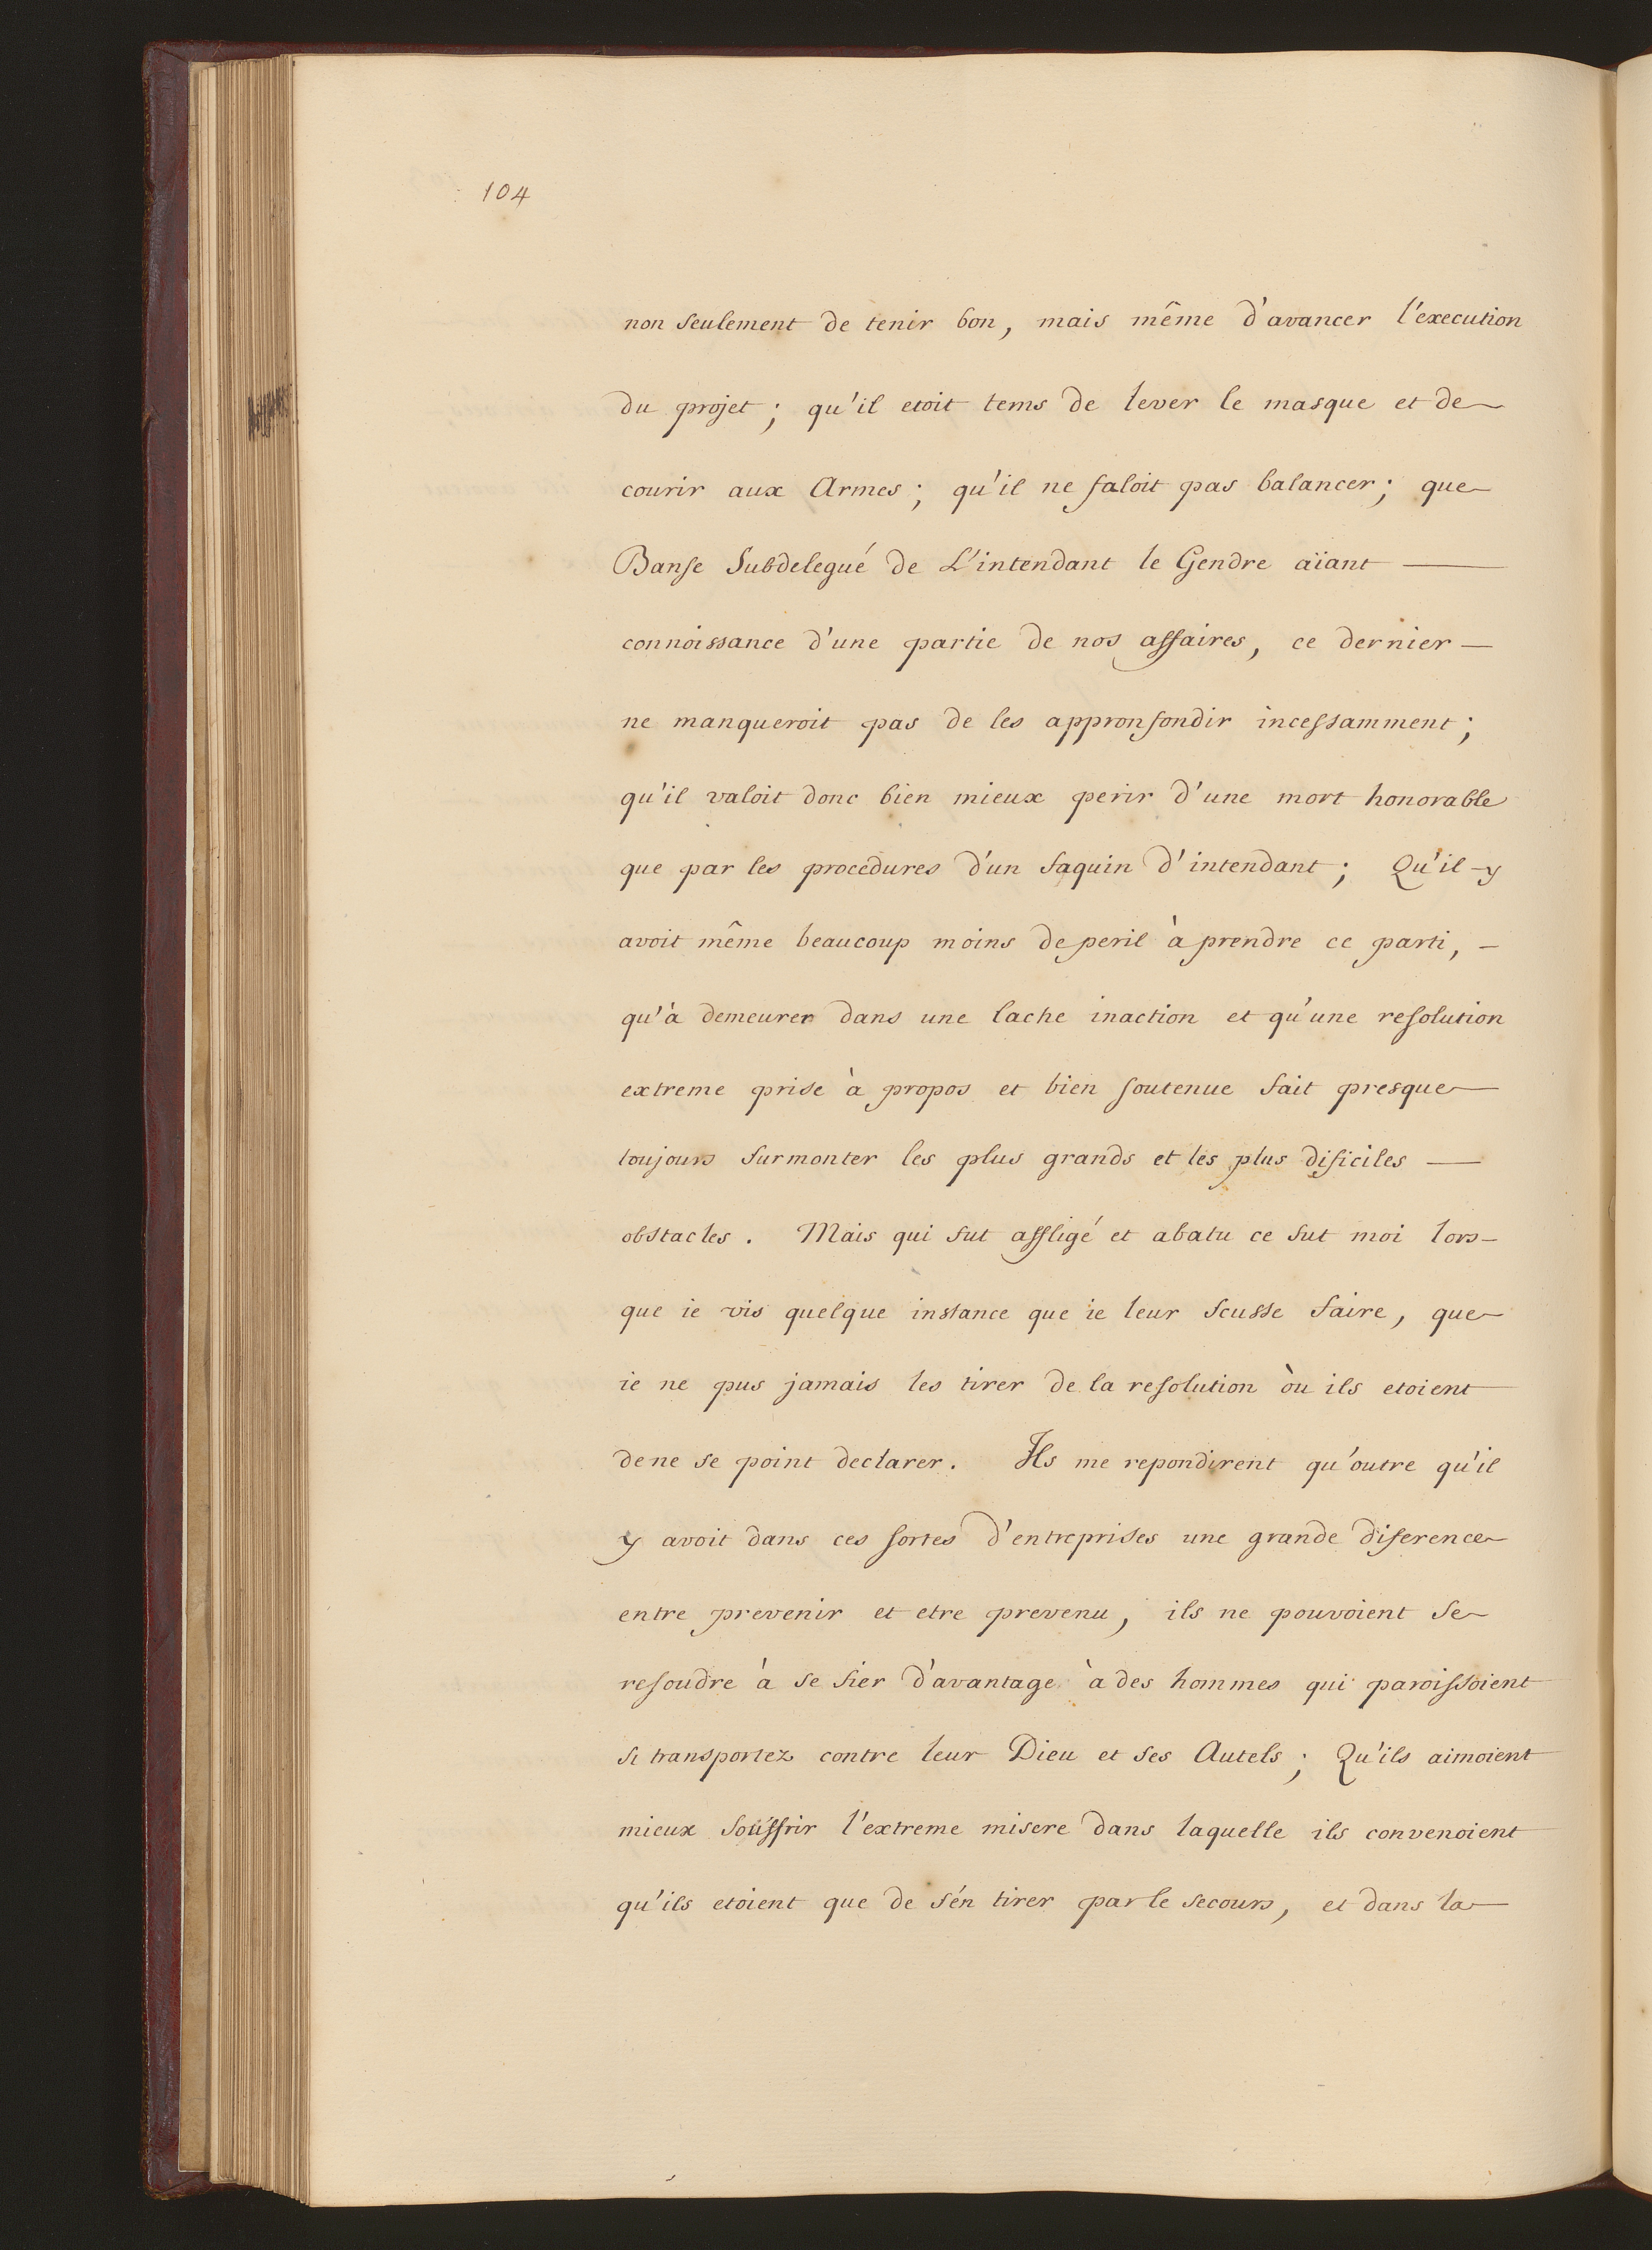 104
non seulement de tenir bon, mais même d'avancer l'execution
du projet; qu'il etoit tems de lever le masque et de
courir aux Armes; qu'il ne faloit pas balancer; que
Banse Subdelegué de L'intendant le Gendre aïant
connoissance d'une partie de nos affaires, ce dernier
ne manqueroit pas de les appronfondir incessamment;
qu'il valoit donc bien mieux perir d'une mort honorable
que par les procedures d'un faquin d'intendant; Qu'il y
avoit même beaucoup moins de peril à prendre ce parti,
qu'à demeurer dans une lache inaction et qu'une resolution
extreme prise à propos et bien soutenue fait presque
toujours surmonter les plus grands et les plus dificiles
obstacles. Mais qui fut affligé et abatu ce fut moi lors-
que ie vis quelque instance que ie leur scusse faire, que
ie ne pus jamais les tirer de la resolution où ils etoient
de ne se point declarer. Ils me repondirent qu'outre qu'il
y avoit dans ces sortes d'entreprises une grande diference
entre prevenir et etre prevenu, ils ne pouvoient se
resoudre à se fier d'avantage à des hommes qui paroissoient
si transportez contre leur Dieu et ses Autels; Qu'ils aimoient
mieux souffrir l'extreme misere dans laquelle ils convenoient
qu'ils etoient que de s'en tirer par le secours, et dans la